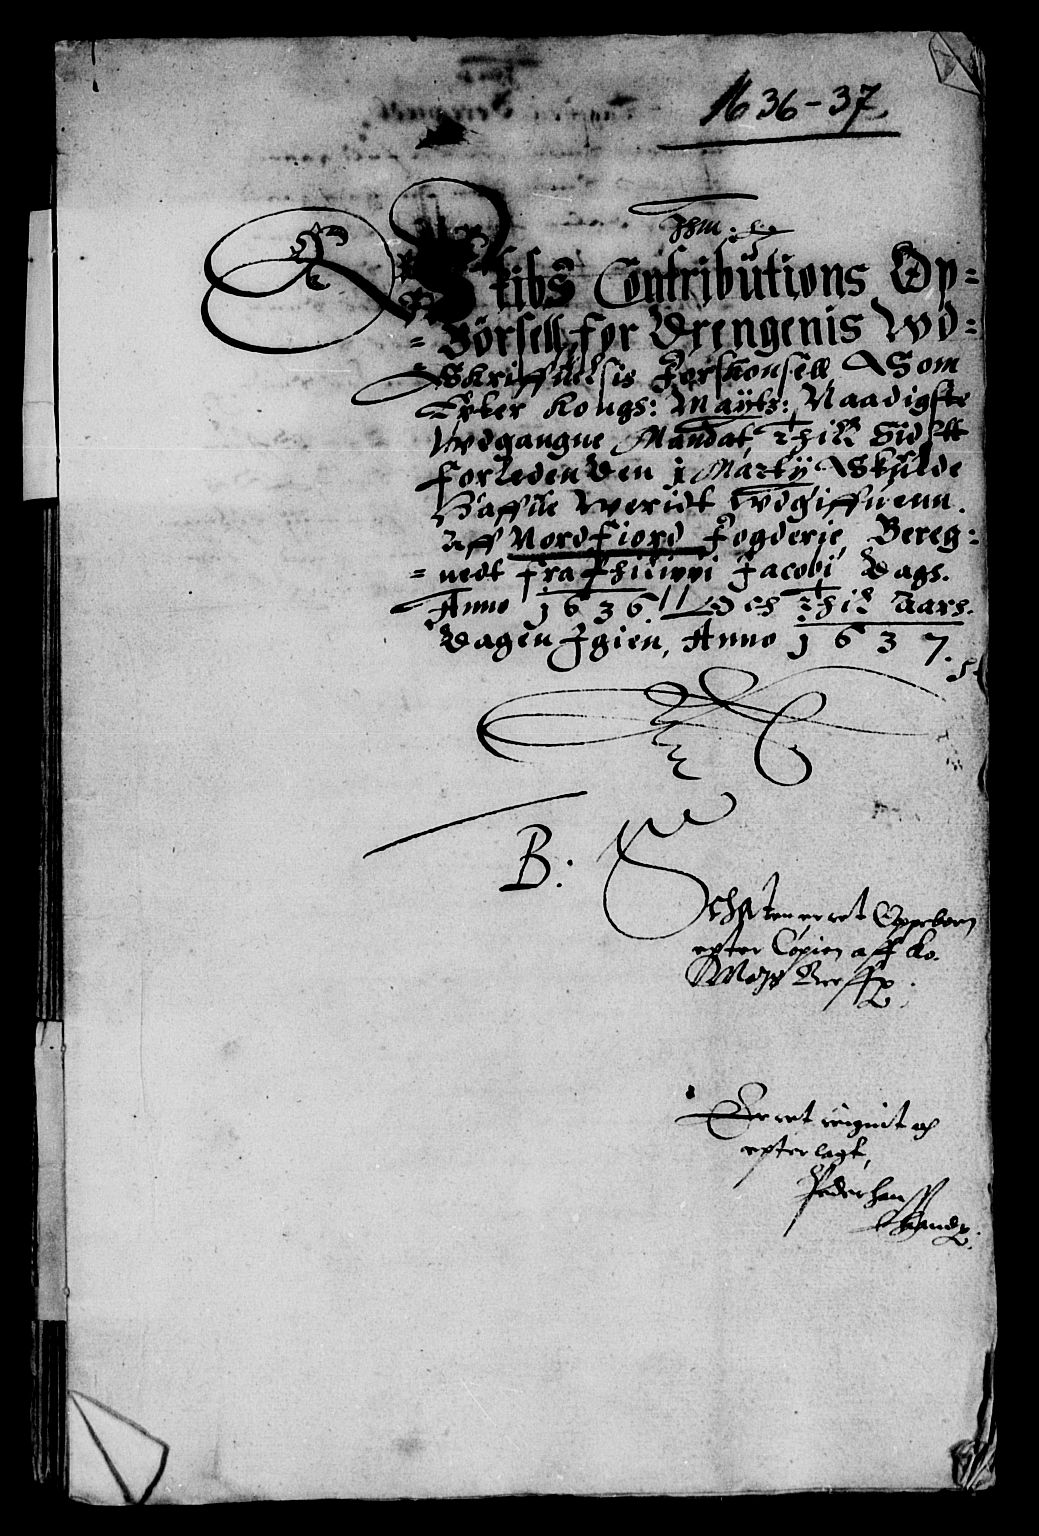 1636-37
Skibs Contributions Op=
=Børsell for Drengenis Wd=
Skriffuelsis Forskonsell Som
Epter Kongs: Maÿts: Naadigste
Wdgangne Mandat Thill Sidstt
Forleden Den j Martij Skulde
Haffue Weridt Wdgiffuenn
Aff Nordfiord Fogderie Bereg=
=nedt fra Philippi Jacobi Dags.
Anno 1636 // Och Thil Aars.
Dagen Igien, Anno 1637.
B:
Schatten er ret Oppeborn
epter Copien aff Ko.
Mayts Breff
Er ret reignit og
epterlagt,
Peder Hanss